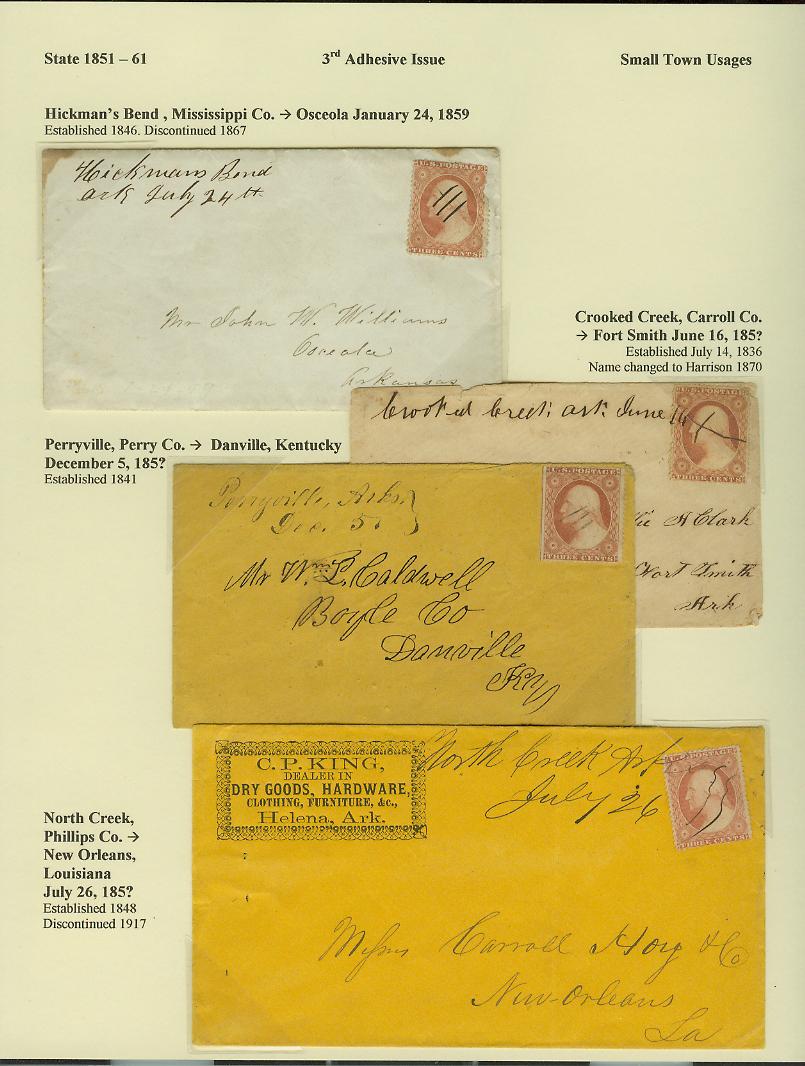 State 1851 – 61 3rd Adhesive Issue Small Town Usages
Hickman's Bend , Mississippi Co. → Osceola January 24, 1859
Established 1846. Discontinued 1867
Hickmans Bend
Ark July 24th
U.S. POSTAGE
THREE CENTS
Mr John W. Williams
Osceola
Arkansas
Crooked Creek, Carroll Co.
→ Fort Smith June 16, 185?
Established July 14, 1836
Name changed to Harrison 1870
Crooked Creek Ark June 16
U.S. POSTAGE
THREE CENTS
A Clark
Fort Smith
Ark
Perryville, Perry Co. → Danville, Kentucky
December 5, 185?
Established 1841
Perryville, Arks.
Dec. 5
U.S. POSTAGE
THREE CENTS
Mr Wm L. Caldwell
Boyle Co
Danville
Ky
North Creek,
Phillips Co. →
New Orleans,
Louisiana
July 26, 185?
Established 1848
Discontinued 1917
C. P. KING,
DEALER IN
DRY GOODS, HARDWARE,
CLOTHING, FURNITURE, &c.,
Helena, Ark.
North Creek Ark
July 26
U.S. POSTAGE
THREE CENTS
Messrs Carroll Hoy & Co
New-Orleans
La